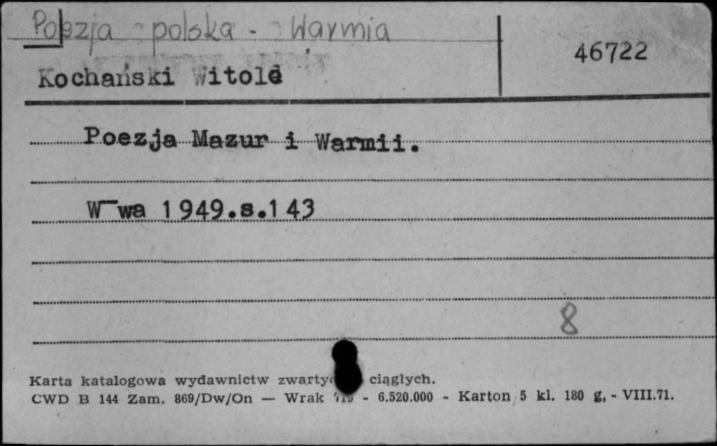 Poezja - polska - Warmia
46722
Kochański Witold
Poezja Mazur i Warmii.
W-wa 1949.s.143
8
Karta katalogowa wydawnictw ciągłych.
CWD B 144 Zam. 869/Dw/On — Wrak - 6.520.000 - Karton 5 kl. 180 g. - VIII.71.